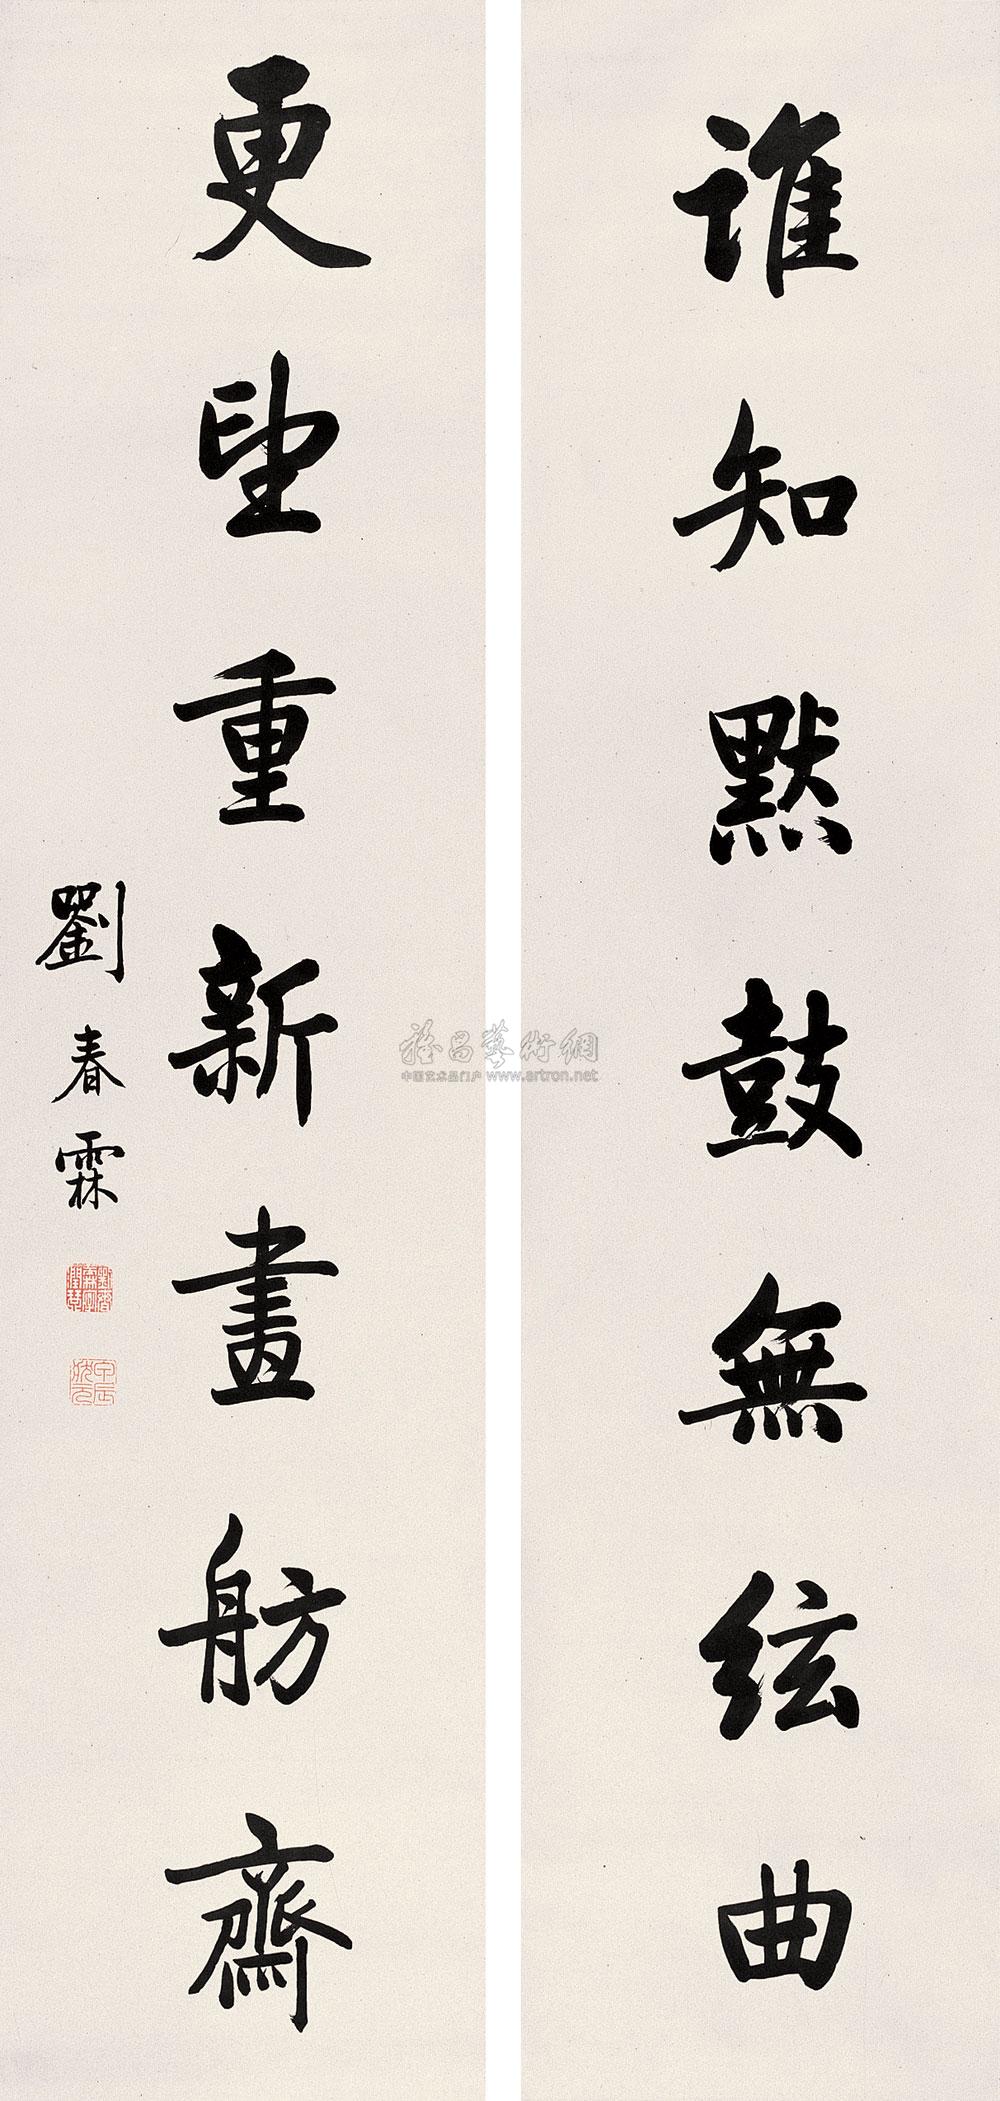 誰知默鼓無絃曲
更望重新畫舫齋
劉春霖
中国艺术品门户 www.artron.net